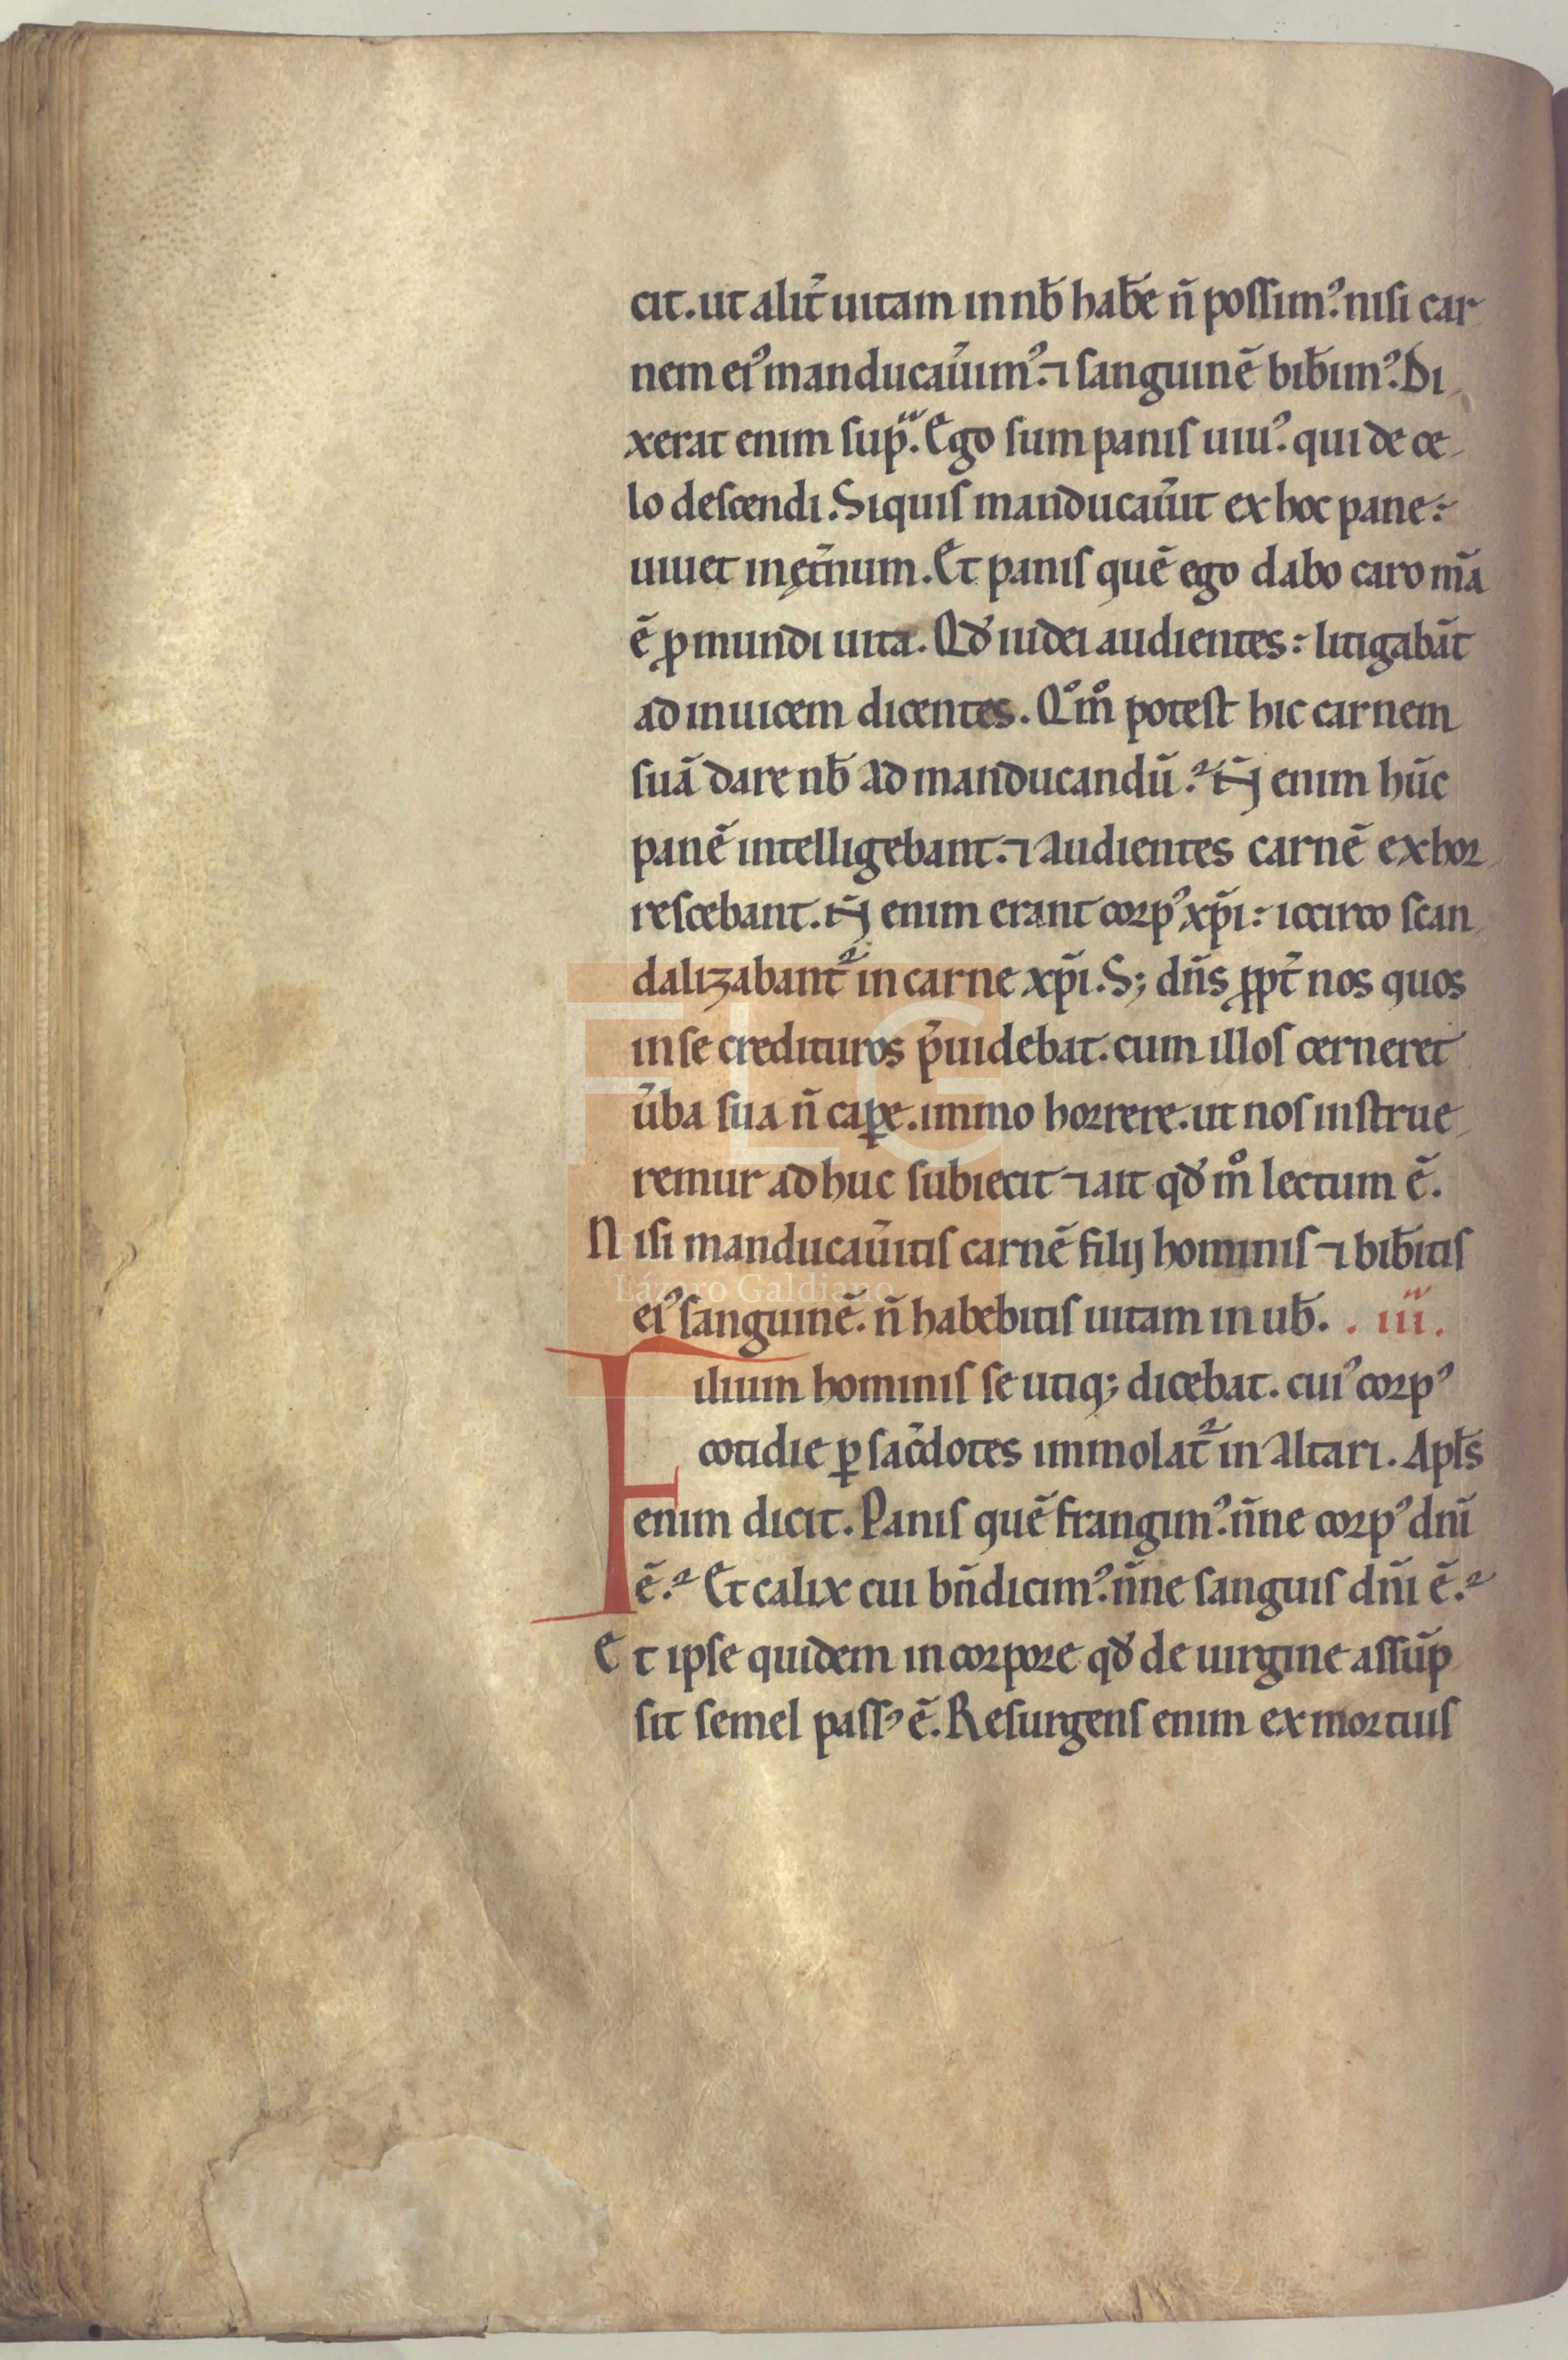 cit. ut alit̄ uitam in nb̄ hab̄e n̄ possim⁹. nisi car
nem ei⁹ manducau̅im⁹. ⁊ sanguinē bib̄im⁹. Di
xerat enim sup̲ᵃ. Ego sum panis uiu⁹. qui de ce
lo descendi. Siquis manducau̅it ex hoc pane:
uiuet in ęt̄num. Et panis quē ego dabo caro m̄a
ē ꝓ mundi uita. Qd̵ iudei audientes: litigabāt
ad inuicem dicentes. Qᵒm̊ potest hic carnem
suā dare nb̄ ad manducandū? enim hūc
panē intelligebant. ⁊ audientes carnē exhor
rescebant. enim erant corp⁹ xp̄i: iccirco scan
dalizabant̄ in carne xp̄i. S; dn̄s ꝓpt̄ nos quos
in se credituros p̄uidebat. cum illos cerneret
u̅ba sua n̄ caꝑe. immo horrere. ut nos instrue
remur adhuc subiecit ⁊ ait qd̵ m̊ lectum ē.
Nisi manducau̅itis carnē filij hominis ⁊ bib̄itis
ei⁹ sanguinē. n̄ habebitis uitam in ub̄. . iii.
Filium hominis se utiq; dicebat. cui⁹ corp⁹
cotidie ꝑ sac̄dotes immolat̄ in altari. Apl̄s
enim dicit. Panis quē frangim⁹. n̄ne corp⁹ dn̄i
ē? Et calix cui bn̄dicim⁹. n̄ne sanguis dn̄i ē?
Et ipse quidem in corpore qd̵ de uirgine assūp
sit semel pass⁹ ē. Resurgens enim ex mortuis
FLG
Lázaro Galdiano